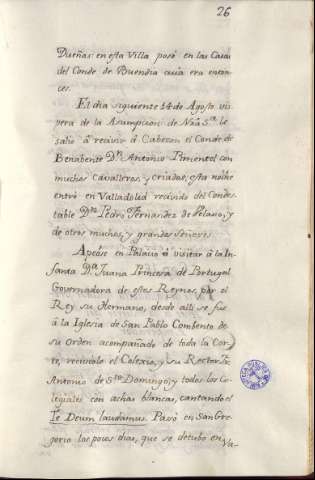 26
Dueñas: en esta Villa posó en las Casas
del Conde de Buendia cuia era enton-
ces.
El dia siguiente 14 de Agosto vis-
pera de la Asumpcion de Nra Sra. le
salió á recivir á Cabezon el Conde de
Benabente Dn. Antonio Pimentel con
muchos Cavalleros, y criados, esta noche
entró en Valladolid recivido del Condes-
table Dn. Pedro Fernandez de Velasco, y
de otros muchos, y grandes Señores.
Apeóse en Palacio á visitar á la In-
fanta Dª. Juana Princesa de Portugal
Governadora de estos Reynos, por el
Rey su Hermano, desde alli se fue
á la Iglesia de San Pablo Combento de
su Orden acompañado de toda la Cor-
te, recivióle el Colexio, y su Rector Fr.
Antonio de Sto. Domingo, y todos los Co-
legiales con achas blancas, cantando el
Te Deum laudamus. Pasó en San Gre-
gorio los pocos dias, que se detubo en Va-